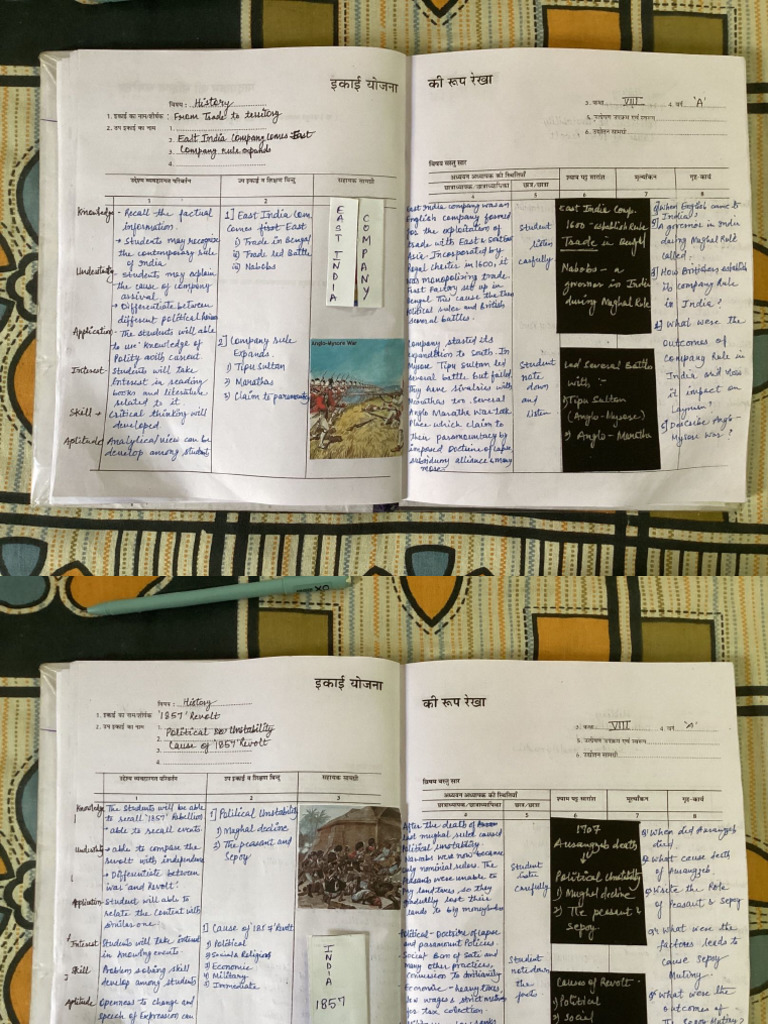 इकाई योजना
की रूप रेखा
विषय : History
1. इकाई का नाम/शीर्षक : From Trade to territory
2. उप इकाई का नाम 1.
2. East India Company comes East
3. Company rule expands
4.
3. कक्षा VIII 4. वर्ग 'A'
5. उद्योतन उपक्रम एवं स्वरूप
6. उद्योतन सामग्री
विषय वस्तु सार
उद्देश्य व्यवहारगत परिवर्तन
उप इकाई व शिक्षण बिन्दु
सहायक सामग्री
अध्ययन अध्यापक की स्थितियाँ
छात्राध्यापक/छात्राध्यापिका
छात्र/छात्रा
श्याम पट्ट सारांश
मूल्यांकन
गृह-कार्य
1 2 3 4 5 6 7 8
Knowledge - Recall the factual
information.
→ Students may recognize
the contemporary rule
of India
Understanding - Students may explain
the cause of company
arrival
→ Differentiate between
different political
Application - The students will able
to use knowledge of
Polity acits career
Interest Students will take
Interest in reading
books and literature
related to it
Skill → Critical thinking will
developed.
Aptitude Analytical view can be
develop among student
1] East India Com.
Comes first East
i) Trade in Bengal
ii) Trade led Battle
iii) Nabobs
2] Company rule
Expands.
1) Tipu Sultan
2) Marathas
3) Claim to paramountcy
EAST INDIA
COMPANY
Anglo-Mysore War
East India company was an
English company formed
for the exploitation of
trade with East & Southeast
Asia. Incorporated by
Royal charter in 1600, it
was monopolizing trade.
First Factory set up in
Bengal This cause the then
political rules and British
several battles.
Company started its
expandition to South. In
Mysore Tipu Sultan led
several battle but failed.
They have rivalries with
Marathas too. Several
Anglo Maratha War took
Place which claim to
their paramountcy by
imposed Doctrine of lapse
subsidiary alliance & many
more
Student
listen
carefully
Student
note
down
and
listen.
East India Comp.
1600 - establish Rule
Trade in Bengal
Nabobs - a
governor in India
during Mughal Rule
Led Several Battles
with, :-
1) Tipu Sultan
(Anglo - Mysore)
2) Anglo - Maratha
1] When English came to
India?
2] A governor in India
during Mughal Rule
called.
3] How Britishers establish
its company Rule
in India?
4] What were the
Outcomes of
Company Rule in
India and how
it impact on
Laymen?
5] Describe Anglo-
Mysore War?
इकाई योजना
की रूप रेखा
विषय : History
1. इकाई का नाम/शीर्षक '1857' Revolt
2. उप इकाई का नाम 1. Political Unstability
2. Cause of '1857' Revolt
3.
4.
3. कक्षा VIII 4. वर्ग 'A'
5. उद्योतन उपक्रम एवं स्वरूप
6. उद्योतन सामग्री
विषय वस्तु सार
उद्देश्य व्यवहारगत परिवर्तन
उप इकाई व शिक्षण बिन्दु
सहायक सामग्री
अध्ययन अध्यापक की स्थितियाँ
छात्राध्यापक/छात्राध्यापिका
छात्र/छात्रा
श्याम पट्ट सारांश
मूल्यांकन
गृह-कार्य
1 2 3 4 5 6 7 8
Knowledge The Students will be able
to recall '1857' Rebellion
→ able to recall events.
→ able to compare the
revolt with independence
→ Differentiate between
war and Revolt.
Application Student will able to
relate the Content with
similar one.
Interest Students will take interest
in knowing events
Skill Problem solving skill
develop among students
Aptitude Openness to change and
speech of Expression can
1] Political Unstability
1) Mughal decline
2) The peasant and
Sepoy
2] Cause of 1857 Revolt
1) Political
2) Social & Religious
3) Economic
4) Military
5) Immediate
INDIA
1857
After the death of
last mughal ruled caused
Political Unstability
Nawabs were now became
only nominal rulers. The
peasants were unable to
pay land taxes, so they
gradually lost their
lands to big moneylender
Political - Doctrine of lapse
and paramount Policies.
Social - Ban of Sati and
many other practices,
Conversion to christianity
Economic - heavy taxes,
low wages & strict method
for tax collection
Student
note
carefully
Student
note down
the
points
1707
Aurangzeb death
Political Unstability
1) Mughal decline
2) The peasant &
Sepoy
Causes of Revolt -
1) Political
2) Social
Q When did Aurangzeb
died.
Q What cause death
of Aurangzeb.
Q Write the Role
of Peasant & Sepoy
Q What were the
factors leads to
cause Sepoy
Mutiny.
Q What were the
outcomes of
The Sepoy Mutiny?